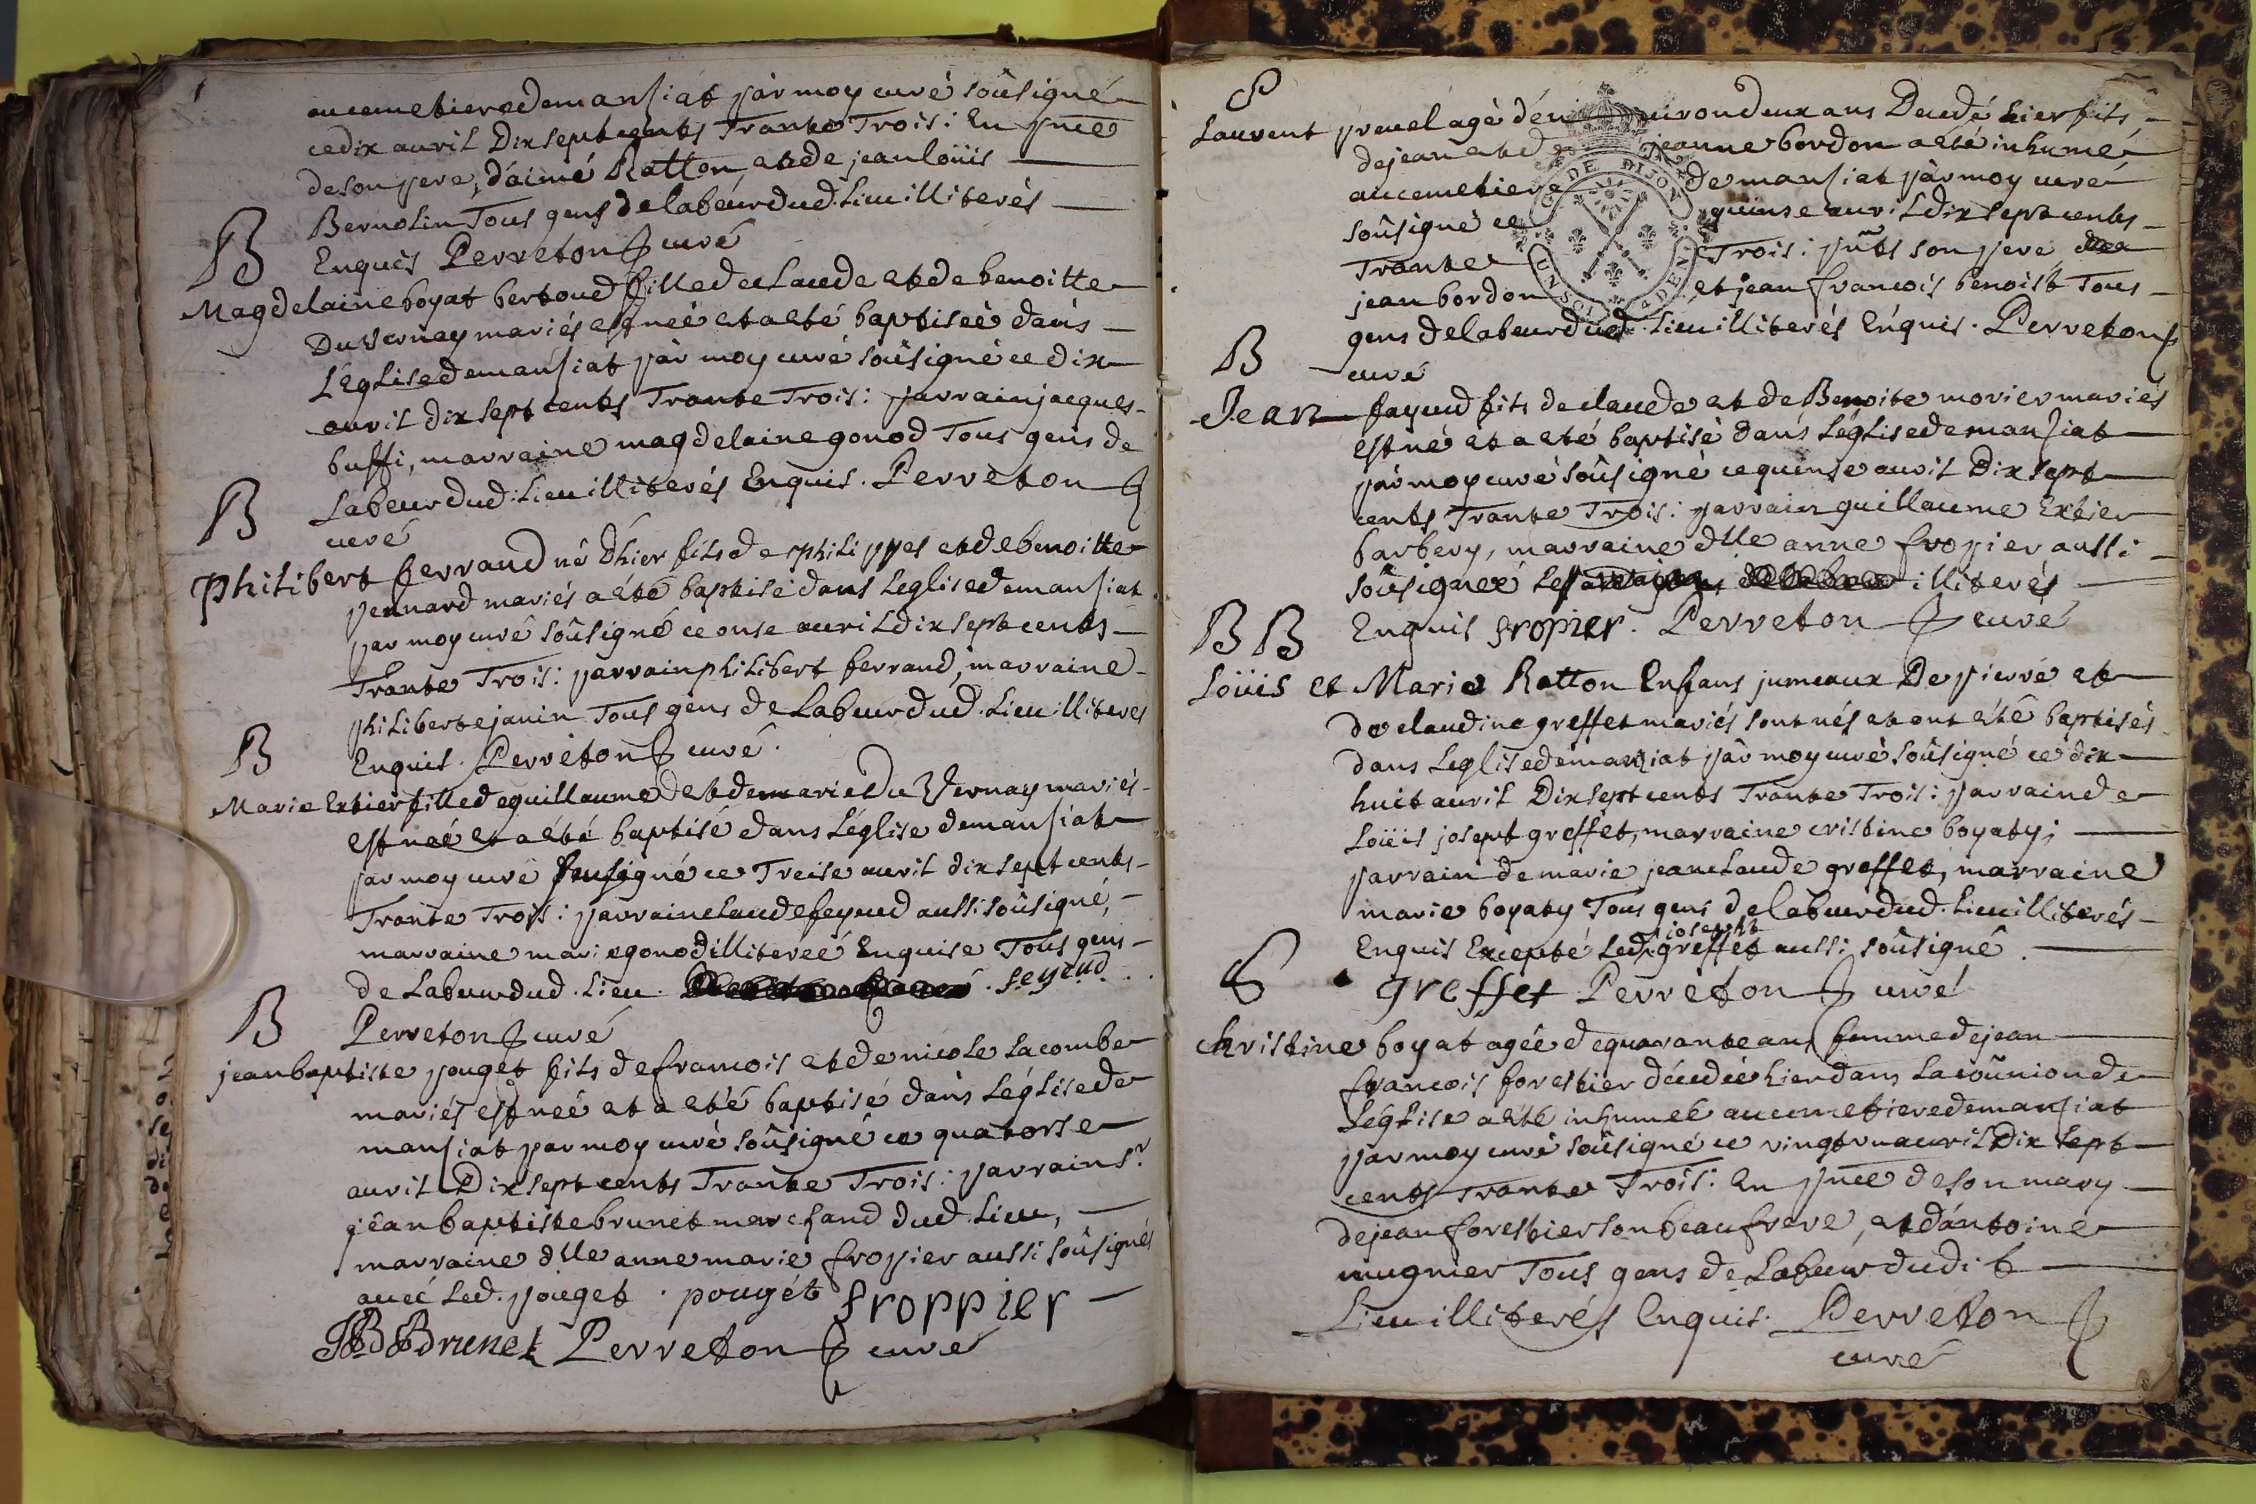 au cemetiere de mansiat par moy curé soûsigné
ce dix avril Dix sept cents Trante Trois : En pnce
de son pere, d'aimé Ratton et de jean loüis
Bernolin Tous gens de labeur dud. Lieu illiterés
Enquis Perreton curé
B
Magdelaine boyat bertoud fille de claude et de benoitte
Du vernay mariés est neé et a eté baptiseé dans
L'église de mansiat par moy curé soûsigné ce dix
avril dix sept cents Trante Trois : parrain jacques
buffi, marraine magdelaine gonod Tous gens de
B
Labeur dud. Lieu illiterés Enquis. Perreton
curé
philibert ferraud né d'hier fils de philippes et de benoitte
pennard mariés a eté baptisé dans Leglise de mansiat
par moy curé soûsigné ce onse avril dix sept cents
Trante Trois : parrain philibert ferraud, marraine
philiberte janin Tous gens de Labeur dud. Lieu illiterés
B
Enquis. Perreton curé.
Marie Extier fille de guillaume et de marie Du Vernay mariés
est neé et a eté baptisé dans L'église de mansiat
par moy curé sousigné ce Treise avril dix sept cents
Trante Trois : parrain claude feyeud aussi soûsigné,
marraine marie gonod illitereé Enquise Tous gens
de Labeur dud. Lieu. feyeud.
B
Perreton curé
jean baptiste pouget fils de francois et de nicole Lacombe
mariés est neé et a eté baptisé dans Léglise de
mansiat par moy curé soûsigné ce quatorse
avril Dix sept cents Trante Trois : parrain sr
jean baptiste brunet marchand dud. Lieu,
marraine dlle anne marie fropier aussi soûsignés
avec Led. pouget. pougét froppier
JB Brunet Perreton curé
S
Laurent prevel agé d'environ deux ans Decedé hier fils
de jean et de jeanne bordon a eté inhumé
au cemetiere de mansiat par moy curé
soûsigné ce quinse avril dix sept cents
Trante Trois : pnts son pere
jean bordon et jean francois benoist Tous
gens de labeur dud. Lieu illiterés Enquis. Perreton
curé
B
Jean fayeud fils de claude et de Benoite morier mariés
est né et a eté baptisé dans Léglise de mansiat
par moy curé soûsigné ce quinse avril Dix sept
cents Trante Trois : parrain guillaume Extier
barbery, marraine dlle anne fropier aussi
soûsigneé illiterés
BB
Enquis fropier. Perreton curé
Loüis et Marie Ratton Enfans jumeaux De pierre et
de claudine greffet mariés sont nés et ont eté baptisés
dans Leglise de mansiat par moy curé soûsigné ce dix
huit avril Dix sept cents Trante Trois : parrain de
Loüis josept greffet, marraine cristine boyaty ;
parrain de marie jean claude greffet, marraine
marie boyaty Tous gens de Labeur dud. Lieu illiterés
Enquis Excepté Led. josepht greffet aussi soûsigné.
S
greffet Perreton curé
christine boyat ageé de quarante ans femme de jean
francois forestier décedeé hier dans La coûnion de
Léglise a eté inhumeé au cemetiere de mansiat
par moy curé soûsigné ce vingt un avril Dix sept
cents Trante Trois : En pnce de son mary
de jean forestier son beau frere, et d'antoine
mugnier Tous gens de Labeur dudit
Lieu illiterés Enquis. Perreton
curé